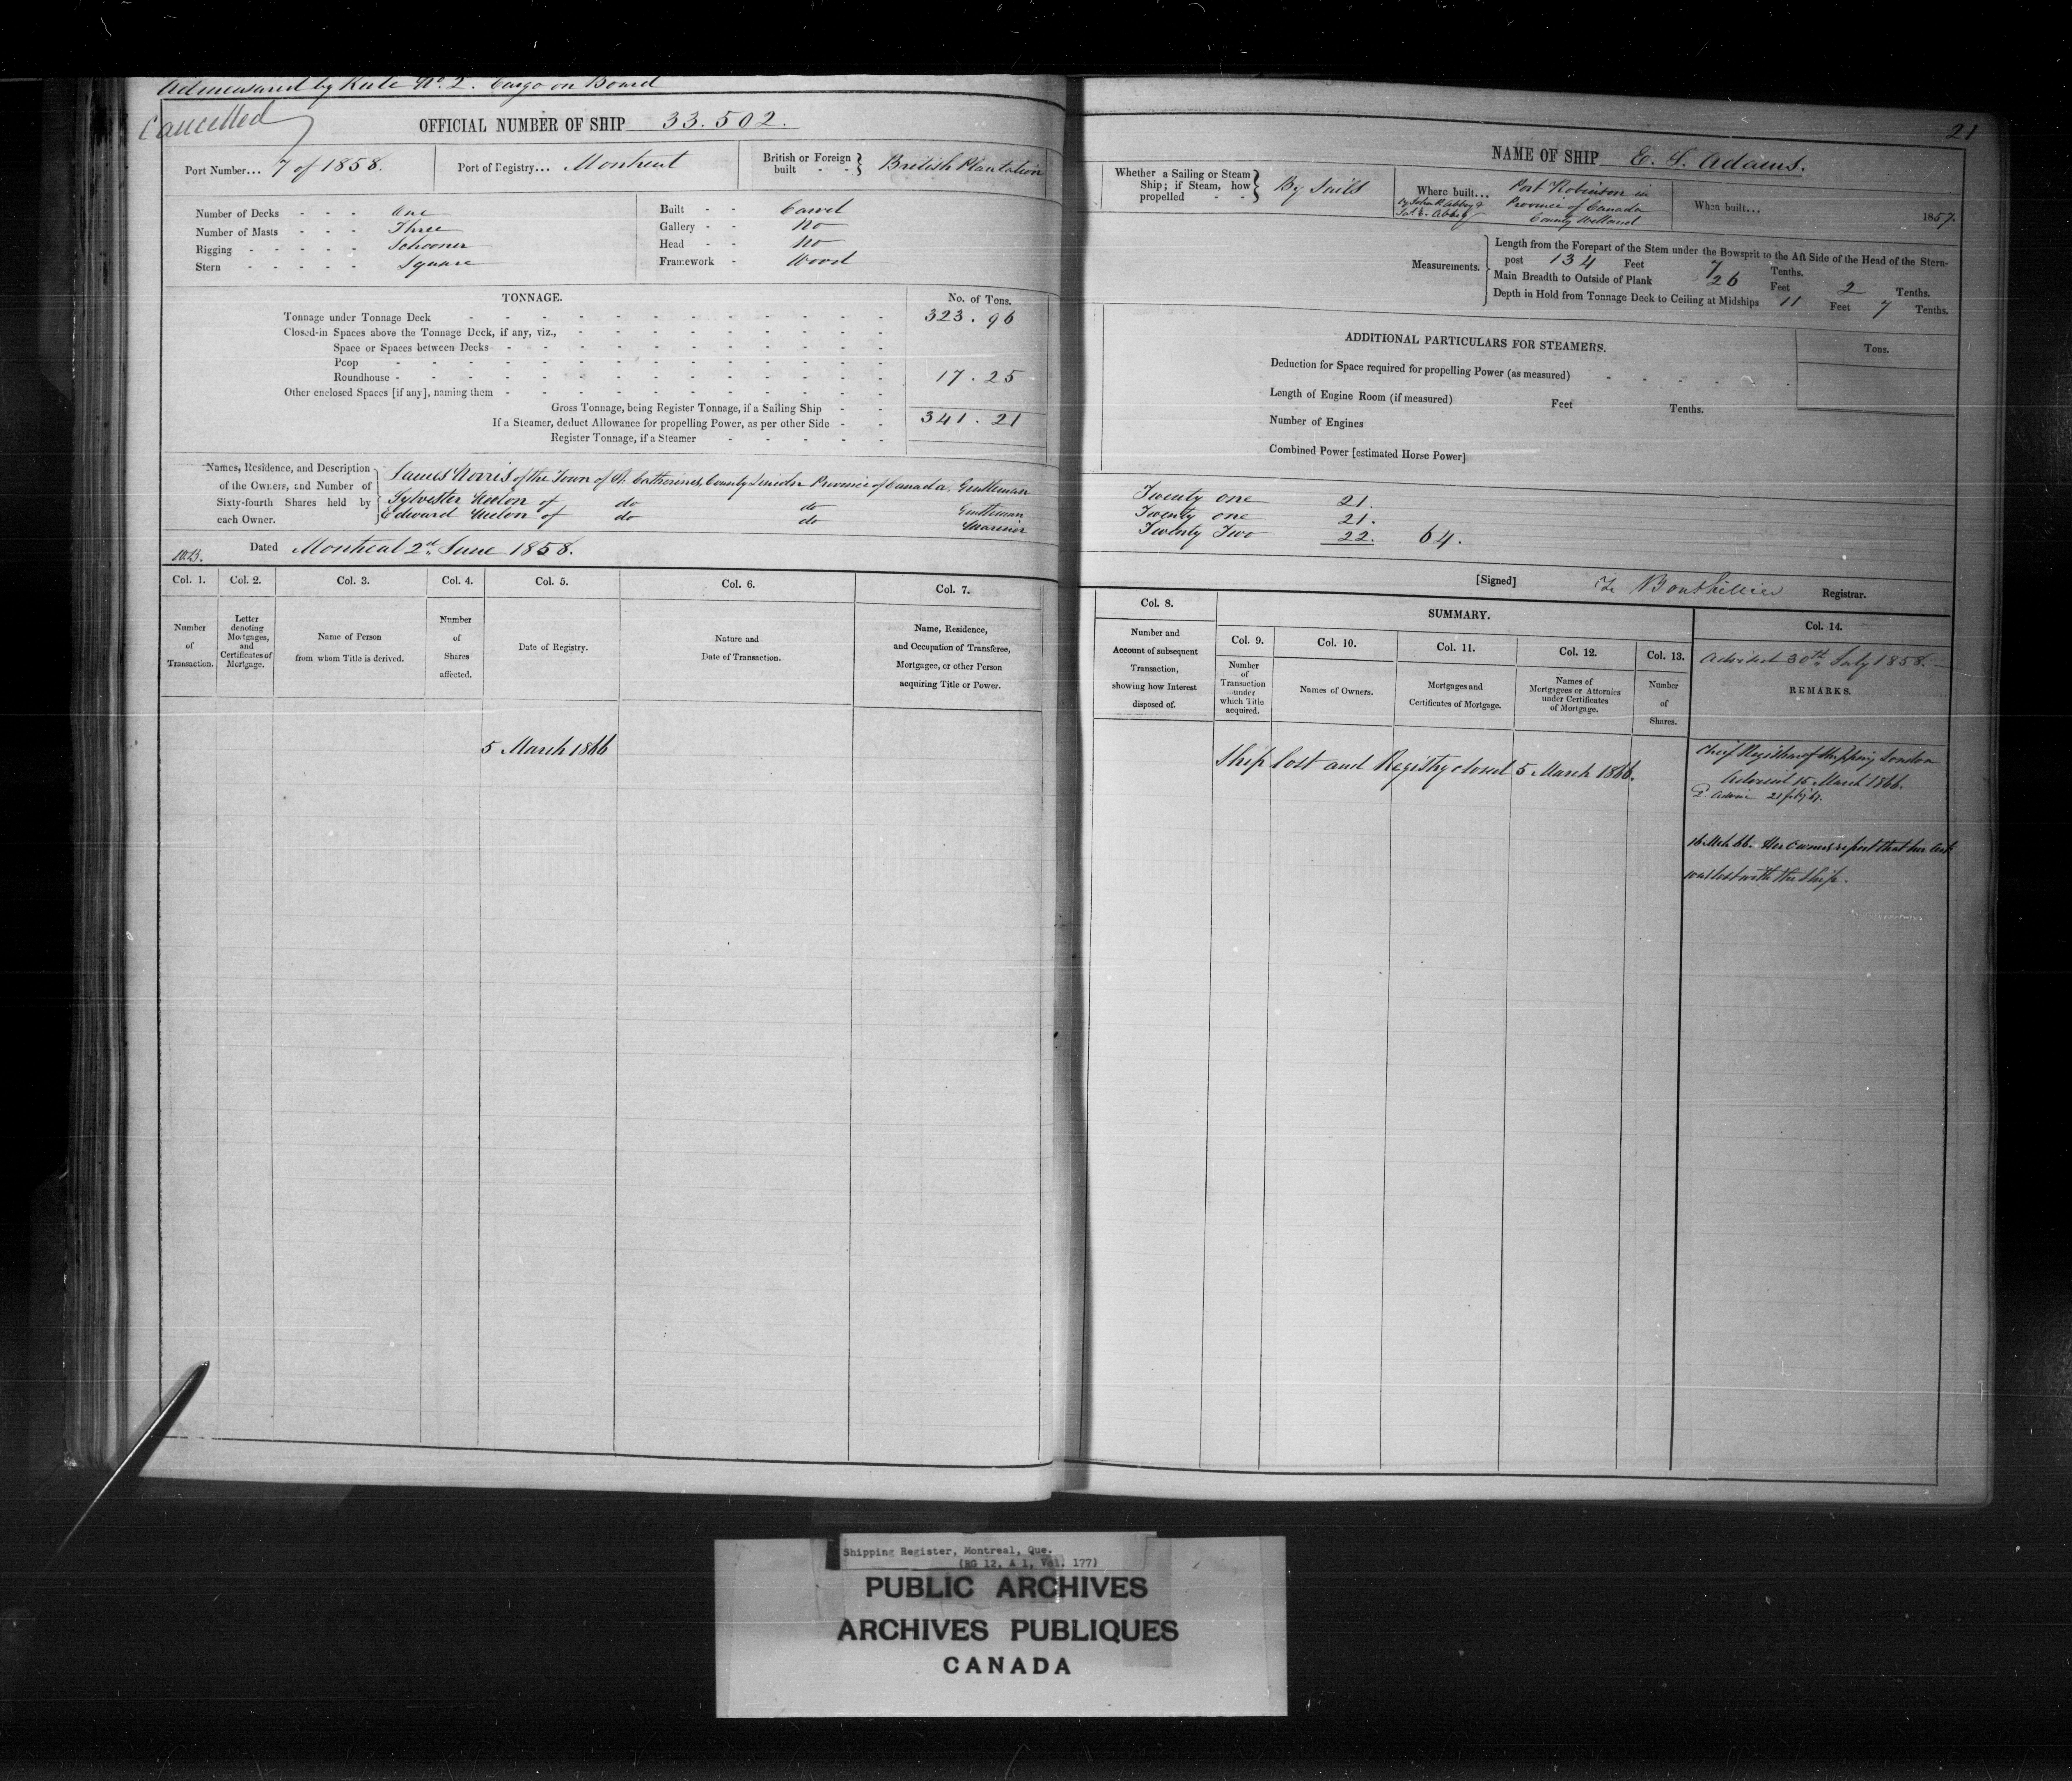 Admeasured by Rule No. 2. Cargo on Board
Cancelled
OFFICIAL NUMBER OF SHIP 33.502.
Port Number... 7 of 1858.
Port of Registry... Montreal
British or Foreign built - - } British Plantation
Number of Decks - - - One
Number of Masts - - - Three
Rigging - - - - - Schooner
Stern - - - - - Square
Built - - Carvel
Gallery - - No
Head - - No
Framework - Wood
TONNAGE.
No. of Tons.
Tonnage under Tonnage Deck 323.96
Closed-in Spaces above the Tonnage Deck, if any, viz.,
Space or Spaces between Decks
Poop
Roundhouse 17.25
Other enclosed Spaces [if any], naming them
Gross Tonnage, being Register Tonnage, if a Sailing Ship 341.21
If a Steamer, deduct Allowance for propelling Power, as per other Side
Register Tonnage, if a Steamer
Names, Residence, and Description
of the Owners, and Number of
Sixty-fourth Shares held by
each Owner.
James Norris of the Town of St. Catherines, County Lincoln Province of Canada, Gentleman
Sylvester Neelon of do do Gentleman
Edward Neelon of do do Mariner
Dated Montreal 2nd June 1858.
Col. 1. Col. 2. Col. 3. Col. 4. Col. 5. Col. 6. Col. 7.
Number of Transaction.
Letter denoting Mortgages, and Certificates of Mortgage.
Name of Person from whom Title is derived.
Number of Shares affected.
Date of Registry.
Nature and Date of Transaction.
Name, Residence, and Occupation of Transferee, Mortgagee, or other Person acquiring Title or Power.
5 March 1866
21
NAME OF SHIP E. S. Adams.
Whether a Sailing or Steam Ship; if Steam, how propelled - - } By Sails
Where built... Port Robinson in
Province of Canada
County Welland
by John P. Abbey &
Abbey
When built... 1857.
Measurements.
Length from the Forepart of the Stem under the Bowsprit to the Aft Side of the Head of the Stern-
post 134 Feet 7 Tenths.
Main Breadth to Outside of Plank 26 Feet 2 Tenths.
Depth in Hold from Tonnage Deck to Ceiling at Midships 11 Feet 7 Tenths.
ADDITIONAL PARTICULARS FOR STEAMERS.
Tons.
Deduction for Space required for propelling Power (as measured)
Length of Engine Room (if measured) Feet Tenths.
Number of Engines
Combined Power [estimated Horse Power]
Twenty one 21.
Twenty one 21.
Twenty Two 22. 64.
[Signed] Bouthillier Registrar.
Col. 8.
Number and Account of subsequent Transaction, showing how Interest disposed of.
SUMMARY.
Col. 9. Col. 10. Col. 11. Col. 12. Col. 13. Col. 14.
Number of Transaction under which Title acquired.
Names of Owners.
Mortgages and Certificates of Mortgage.
Names of Mortgagees or Attornies under Certificates of Mortgage.
Number of Shares.
Advised 30th July 1858.
REMARKS.
Ship lost and Registry closed 5 March 1866.
Chief Registrar of Shipping London
Advised 15 March 1866.
16 Mch 66. Her Owners report that her Cert
was lost with the Ship.
Shipping Register, Montreal, Que.
(RG 12, A 1, Vol. 177)
PUBLIC ARCHIVES
ARCHIVES PUBLIQUES
CANADA